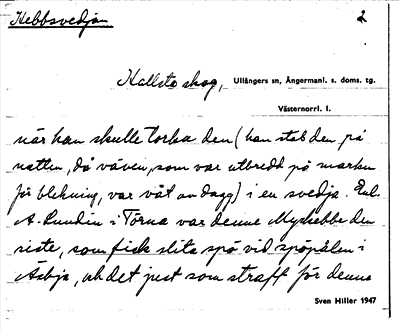 Kebbsvedjan 2
Hallsta skog, Ullångers sn, Ångermanl. s. doms. tg.
Västernorrl. l.
när han skulle torka den (han stal den på
natten, då väven, som var utbredd på marken
för blekning, var våt av dagg) i en svedja. Enl.
A. Lundin i Törna var denne Myrkebbe den
siste, som fick slita spö vid spöpålen i
Äsbja, och det just som straff för denna
Sven Hiller 1947